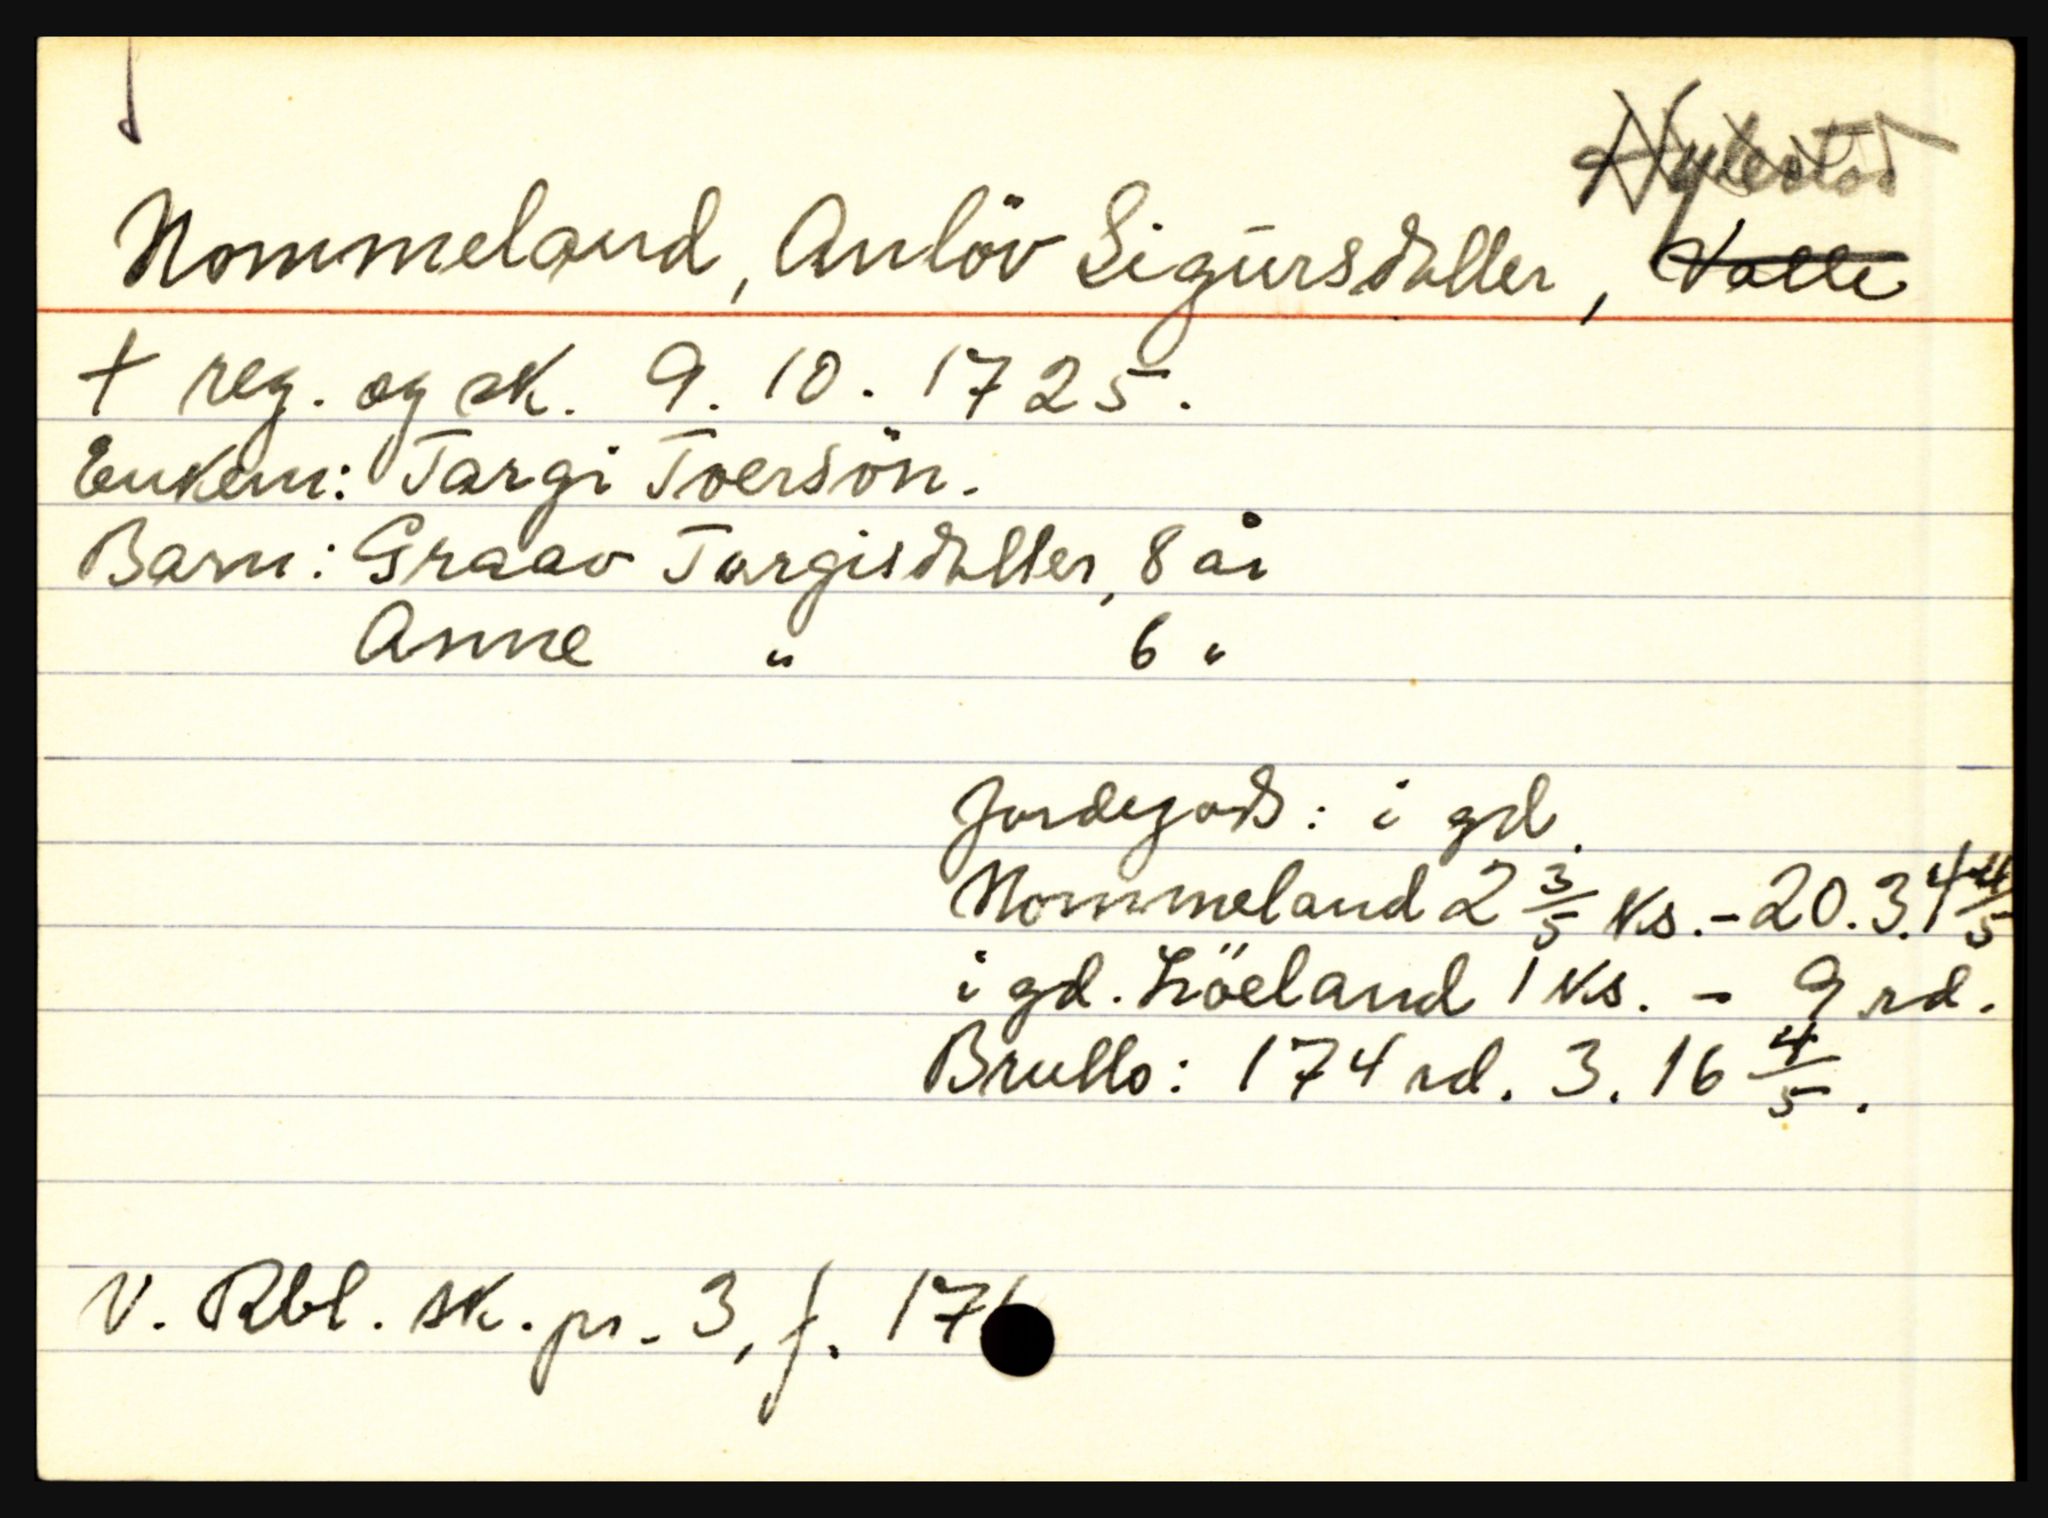 Hylestad
Nommeland, Anlöv Sigursdatter, Valle
† reg. og sk. 9. 10. 1725.
Enkem: Targi Toersön.
Barn: Graav Targisdatter, 8 år
Anne " 6 "
Jordegods: i gd.
Nommeland 2 3/5 ks. - 20.3.4 4/5
i gd. Löeland 1 ks. - 9 rd.
Brutto: 174 rd. 3. 16 4/5.
V. Rbl. sk. pr. 3, f. 17